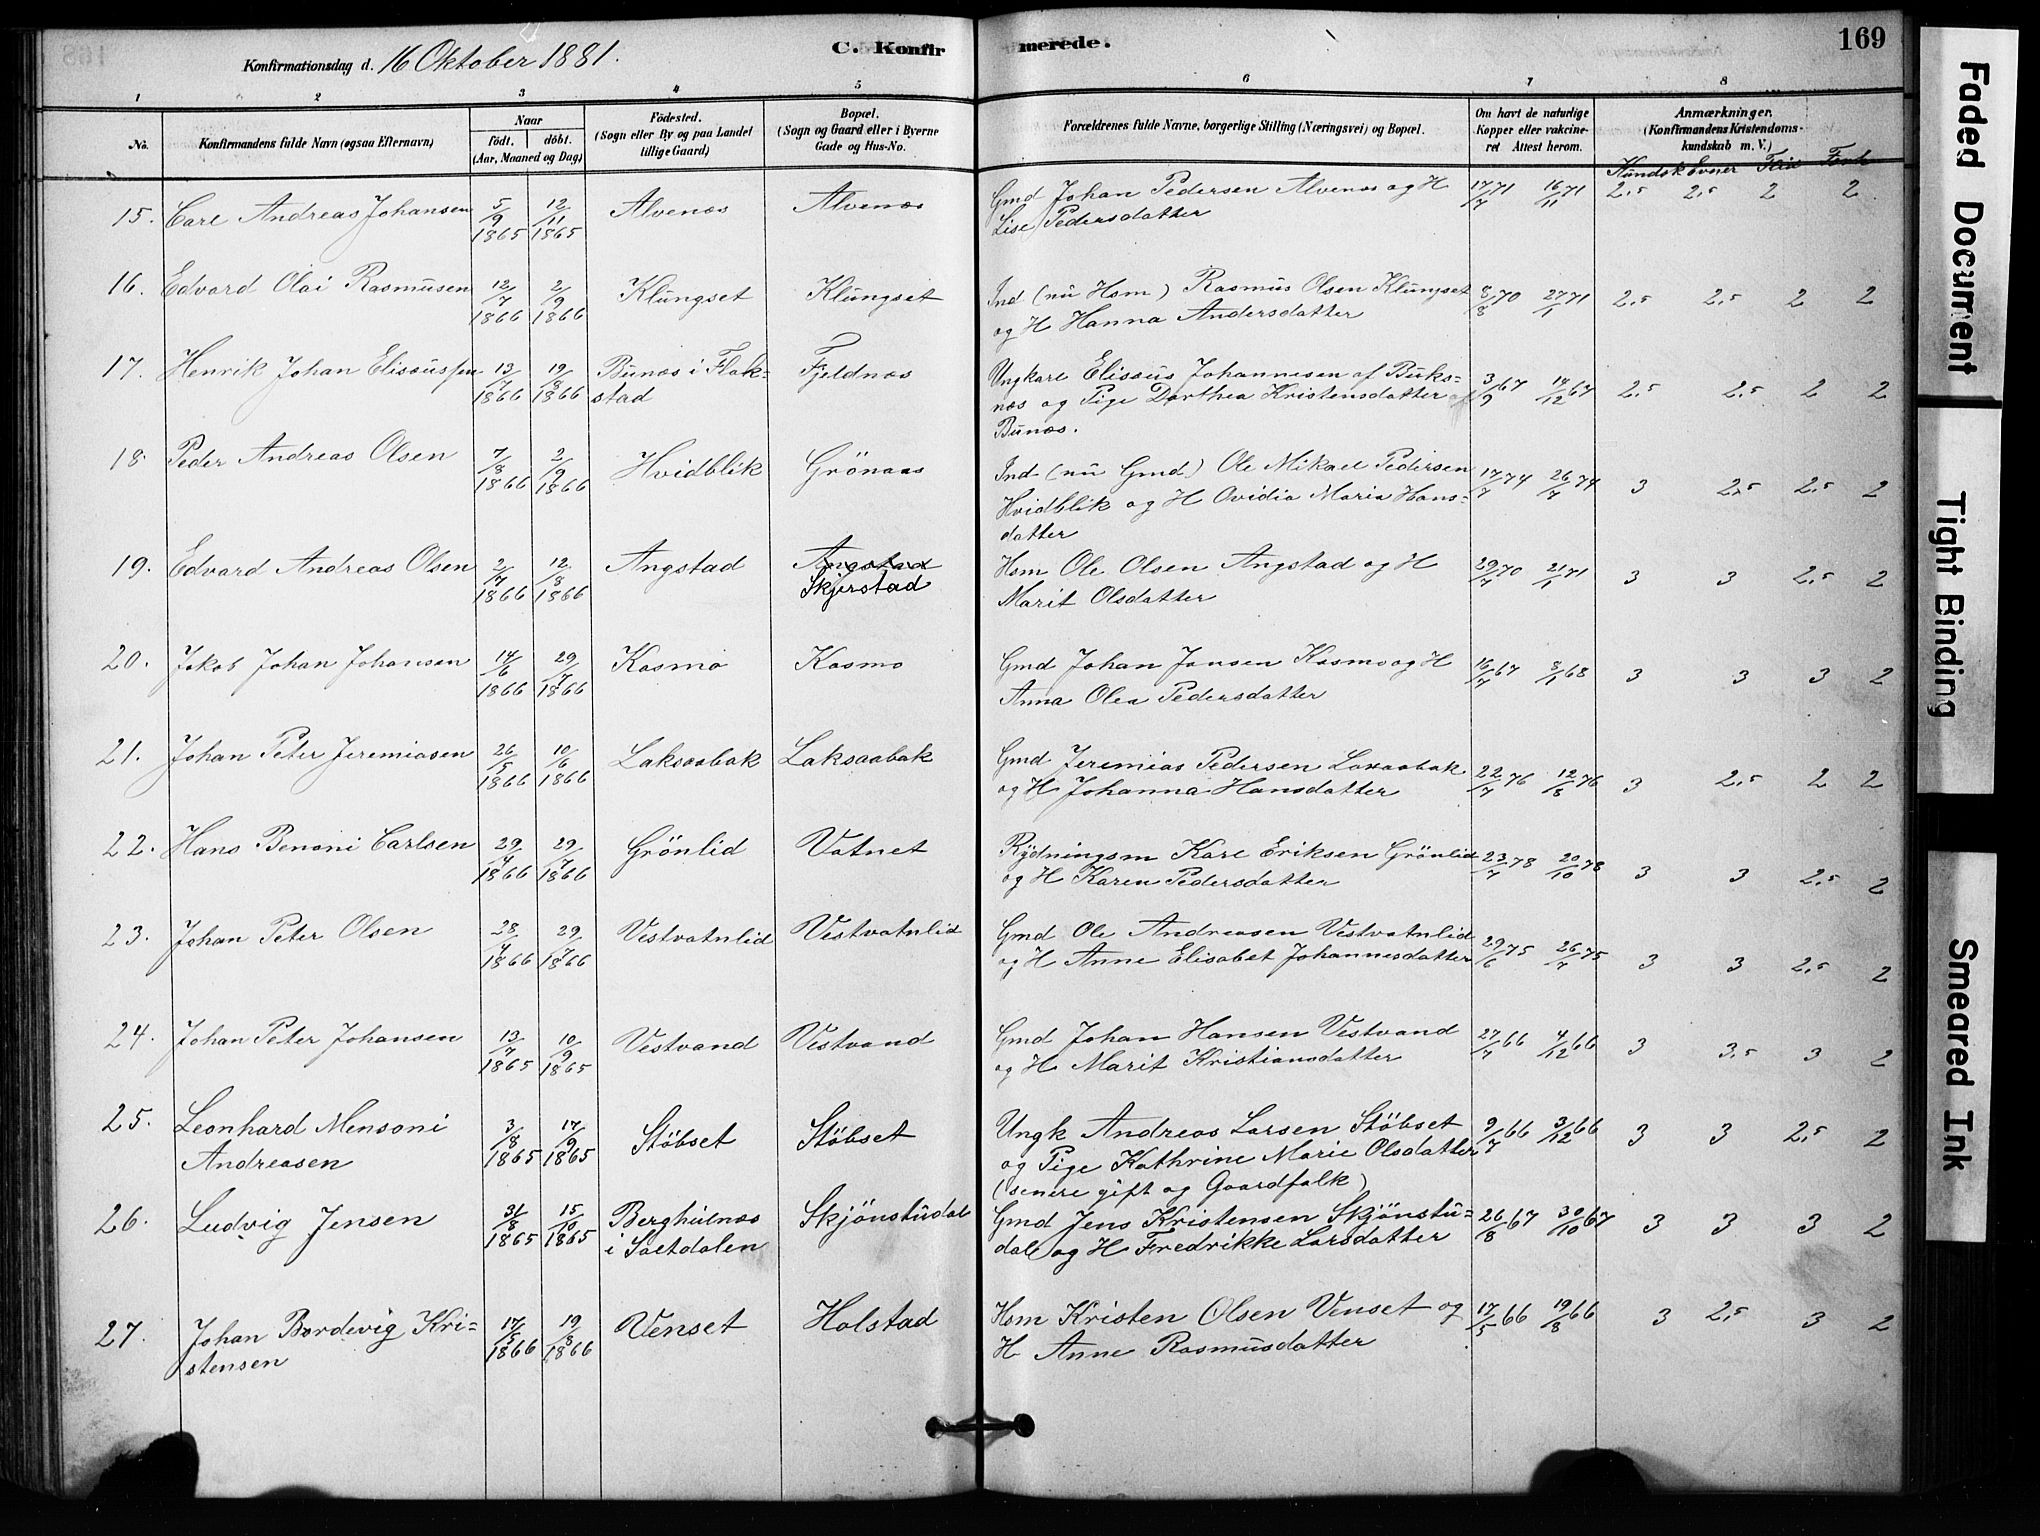 C. Konfirmerede. 169
Konfirmationsdag d. 16 Oktober 1881.
1 2 3 4 5 6 7 8
No. Konfirmandens fulde Navn (ogsaa Efternavn)
Naar
födt. döbt.
(Aar, Maaned og Dag)
Födested.
(Sogn eller By og paa Landet
tillige Gaard)
Bopæl.
(Sogn og Gaard eller i Byerne
Gade og Hus-No.
Forældrenes fulde Navne, borgerlige Stilling (Næringsvei) og Bopæl.
Om havt de naturlige
Kopper eller vakcine-
ret Attest herom.
Anmærkninger.
(Konfirmandens Kristendoms-
kundskab m. V.)
Kundsk Evner Flid Forh
15. Carl Andreas Johansen 5/9 1865 12/11 1865 Alvenes Alvenes Gmd Johan Pedersen Alvenes og H 17/7 71 16/11 71 2,5 2,5 2 2
Lise Pedersdatter
16. Edvard Olai Rasmusen 12/7 1866 2/9 1866 Klungset Klungset Ind (nu Hsm) Rasmus Olsen Klungset 8/8 70 27/1 71 2,5 2,5 2 2
og H Hanna Andersdatter
17. Henrik Johan Elisæussen 13/7 1866 19/8 1866 Bunæs i Flak- Fjeldnæs Ungkarl Elisæus Johannesen af Buks= 3/9 67 14/12 67 2,5 2,5 2 2
stad næs og Pige Dorthea Kristensdatter af
Bunæs.
18. Peder Andreas Olsen 7/8 1866 2/9 1866 Hvidblik Grönaas Ind (nu Gmd) Ole Mikael Pedersen 17/7 74 26/7 74 3 2,5 2,5 2
Hvidblik og H Ovidia Maria Hans-
datter
19. Edvard Andreas Olsen 2/7 1866 12/8 1866 Angstad Angstad Hsm Ole Olsen Angstad og H 29/7 70 21/1 71 3 3 2,5 2
Skjerstad Marit Olsdatter
20. Jakob Johan Johansen 14/6 1866 29/7 1866 Kosmo Kosmo Gmd Johan Jonsen Kosmo og H 16/7 67 8/1 68 3 3 3 2
Anna Olea Pedersdatter
21. Johan Peter Jeremiasen 26/5 1866 10/6 1866 Laksaabak Laksaabak Gmd Jeremias Pedersen Laxaabak 22/7 76 12/8 76 3 2,5 2 2
og H Johanna Hansdatter
22. Hans Benoni Carlsen 29/4 1866 29/7 1866 Grönlid Vatnet Rydningsm Karl Eriksen Grönlid 23/7 78 20/10 78 3 3 2,5 2
og H Karen Pedersdatter
23. Johan Peter Olsen 28/4 1866 29/7 1866 Vestvatnlid Vestvatnlid Gmd Ole Andreasen Vestvatnlid 29/6 75 26/7 75 3 3 2,5 2
og H Anne Elisabet Johannesdatter
24. Johan Peter Johansen 13/7 1865 10/9 1865 Vestvand Vestvand Gmd Johan Hansen Vestvand 27/7 66 4/12 66 3 3,5 3 2
og H Marit Kristiansdatter
25. Leonhard Mensoni 3/8 1865 17/9 1865 Støbset Støbset Ungk Andreas Larsen Støbset 9/7 66 3/12 66 3 3 2,5 2
Andreasen og Pige Kathrine Marie Olsdatter
(senere gift og Gaardfolk)
26. Ludvig Jensen 31/8 1865 15/10 1865 Berghulnæs Skjönstudal Gmd Jens Kristensen Skjönstu= 26/8 67 30/10 67 3 3 3 2
i Saltdalen dal og H Fredrikke Larsdatter
27. Johan Bordevig Kri= 17/5 1866 19/8 1866 Venset Holstad Hsm Kristen Olsen Venset og 17/5 66 19/8 66 3 2,5 3 2
stensen H Anne Rasmusdatter
Faded Document
Tight Binding
Smeared Ink